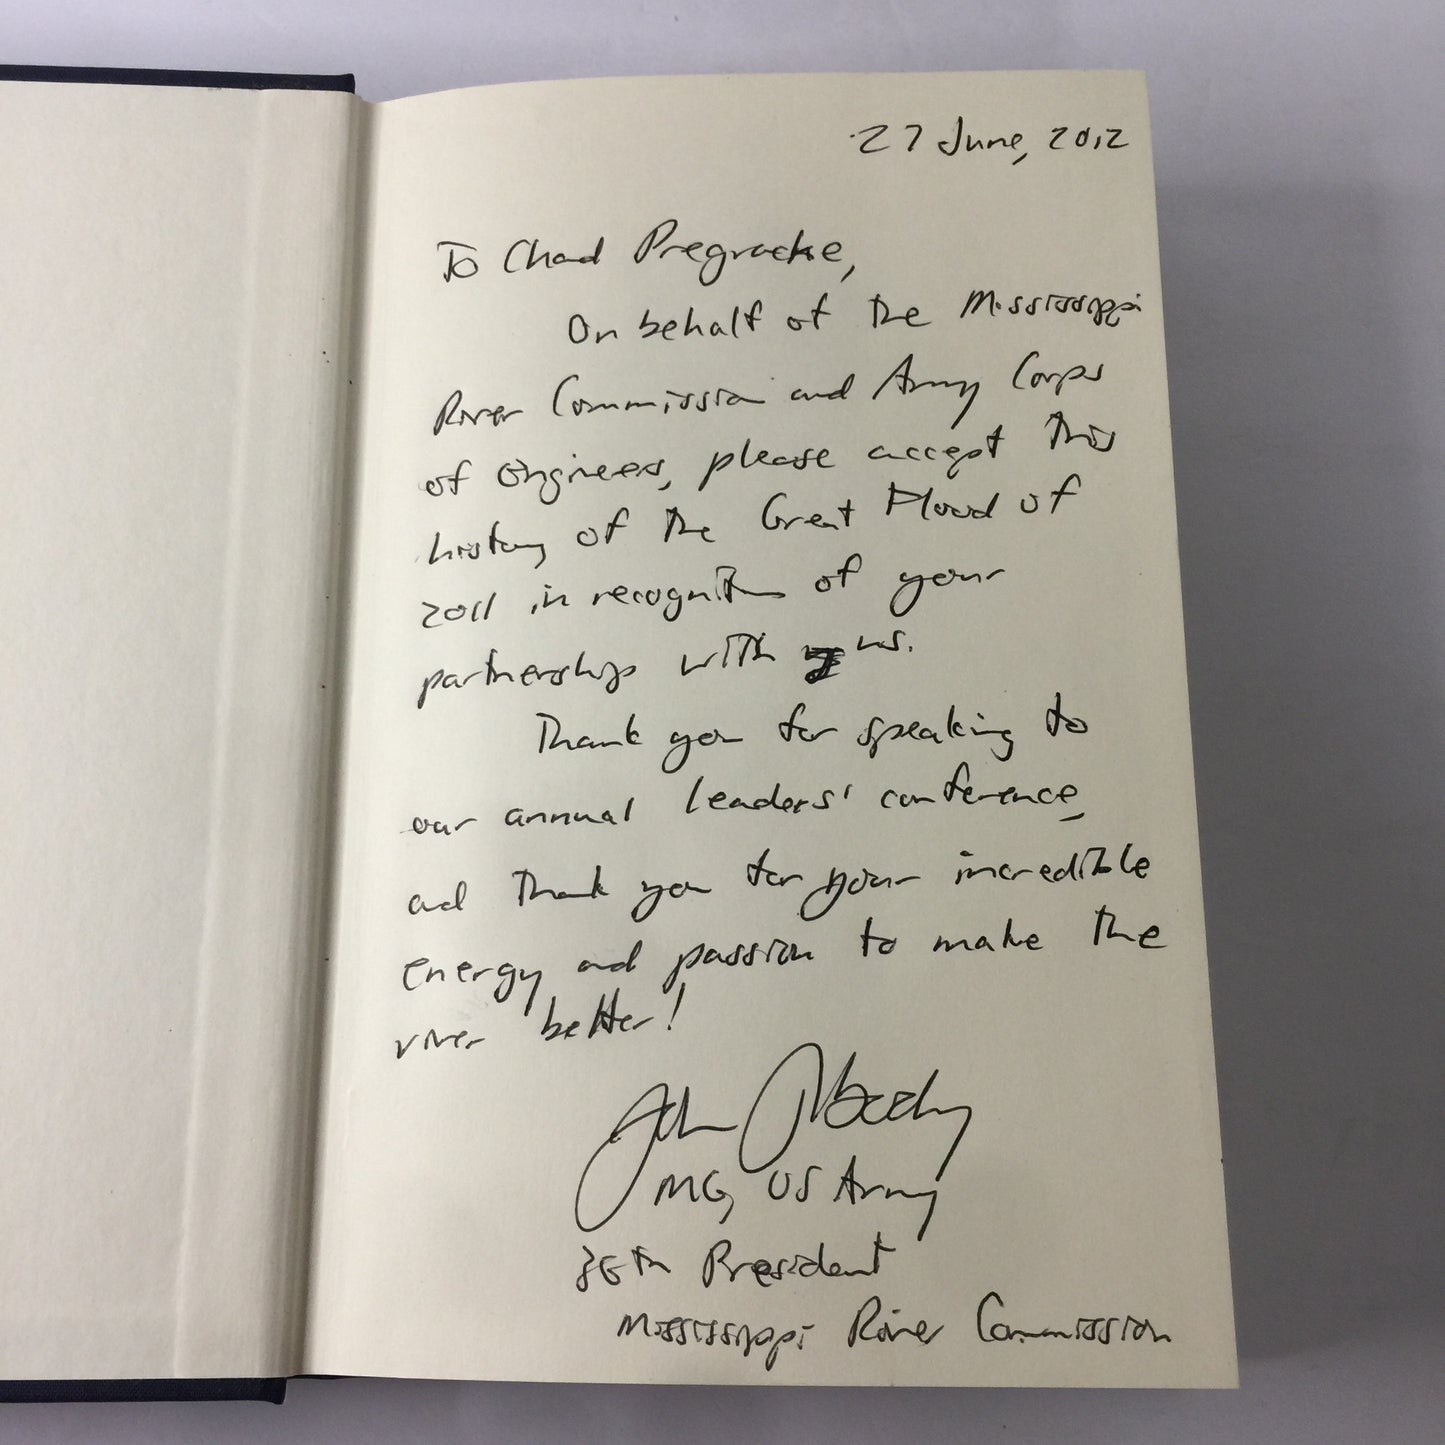 27 June, 2012
To Chad Pregracke,
On behalf of the Mississippi
River Commission and Army Corps
of Engineers, please accept this
history of the Great Flood of
2011 in recognition of your
partnership with us.
Thank you for speaking to
our annual leaders' conference,
and thank you for your incredible
energy and passion to make the
river better!
John Peabody
MG, US Army
36th President
Mississippi River Commission